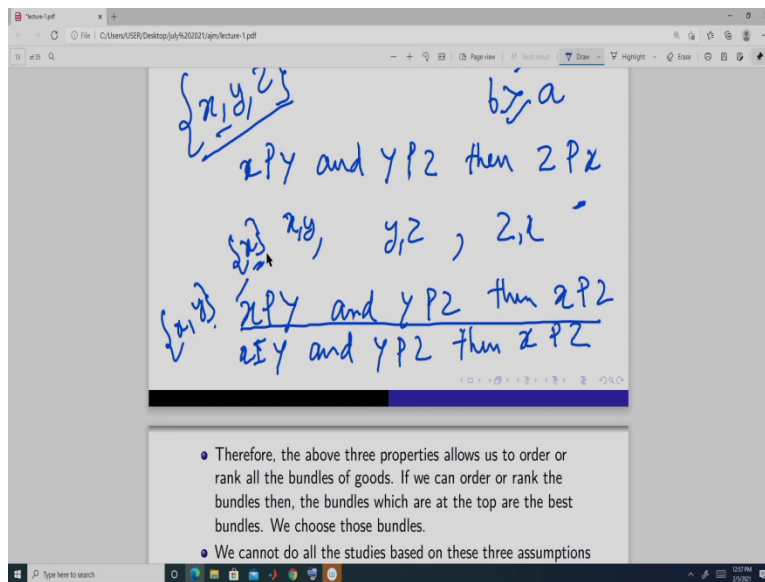 *lecture-1.pdf
File | C:/Users/USER/Desktop/july%202021/ajm/lecture-1.pdf
of 35
Page view
Read aloud
Draw
Highlight
Erase
{x, y, z}
b ≻ a
xPy and yPz then zPx
{x} x,y, y,z , z,x
{x, y} xPy and yPz then xPz
xIy and yPz then xPz
Therefore, the above three properties allows us to order or
rank all the bundles of goods. If we can order or rank the
bundles then, the bundles which are at the top are the best
bundles. We choose those bundles.
We cannot do all the studies based on these three assumptions
Type here to search
12:57 PM
2/5/2021